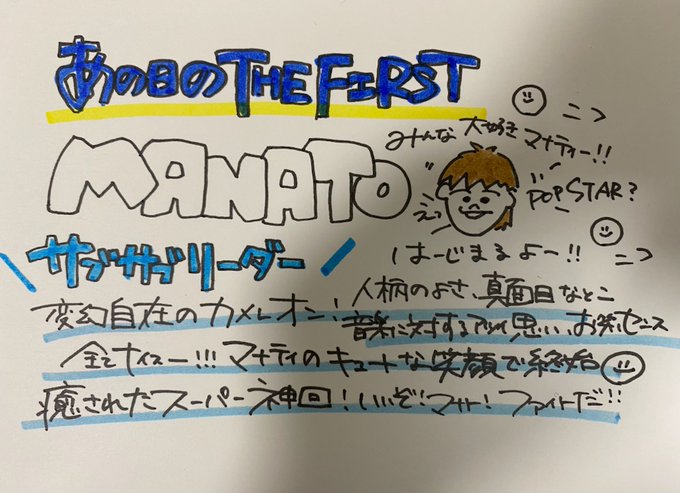 あの日のTHE FIRST
ニコ
みんな大好きマナティー!!
MANATO
えっ
POPSTAR?
はーじまるよー!!
ニコ
サブサブリーダー
変幻自在のカメレオン!人柄のよさ、真面目なとこ
音楽に対するアツイ思い、お笑いセンス
全てナイスー!!!マナティのキュートな笑顔で終始
癒されたスーパー神回!いいぞ!マナト!ファイトだ!!